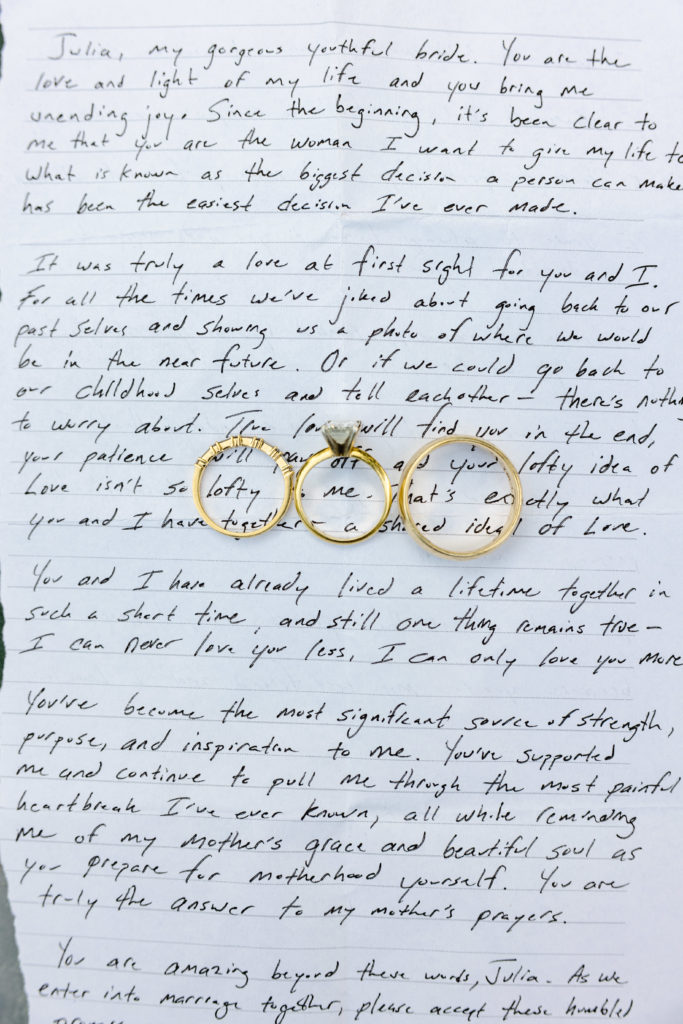 Julia, my gorgeous youthful bride. You are the
love and light of my life and you bring me
unending joy. Since the beginning, it's been clear to
me that you are the woman I want to give my life to
What is known as the biggest decision a person can make
has been the easiest decision I've ever made.
It was truly a love at first sight for you and I.
For all the times we've joked about going back to our
past selves and showing us a photo of where we would
be in the near future. Or if we could go back to
our childhood selves and tell eachother - there's
to worry about. True love will find you in the end,
your patience will pay off and your lofty idea of
Love isn't so lofty to me. That's exactly what
you and I have together - a shared ideal of Love.
You and I have already lived a lifetime together in
such a short time, and still one thing remains true -
I can never love you less, I can only love you more
You've become the most significant source of strength,
purpose, and inspiration to me. You've supported
me and continue to pull me through the most painful
heartbreak I've ever known, all while reminding
me of my mother's grace and beautiful soul as
you prepare for motherhood yourself. You are
truly the answer to my mother's prayers.
You are amazing beyond these words, Julia. As we
enter into marriage together, please accept these humbled